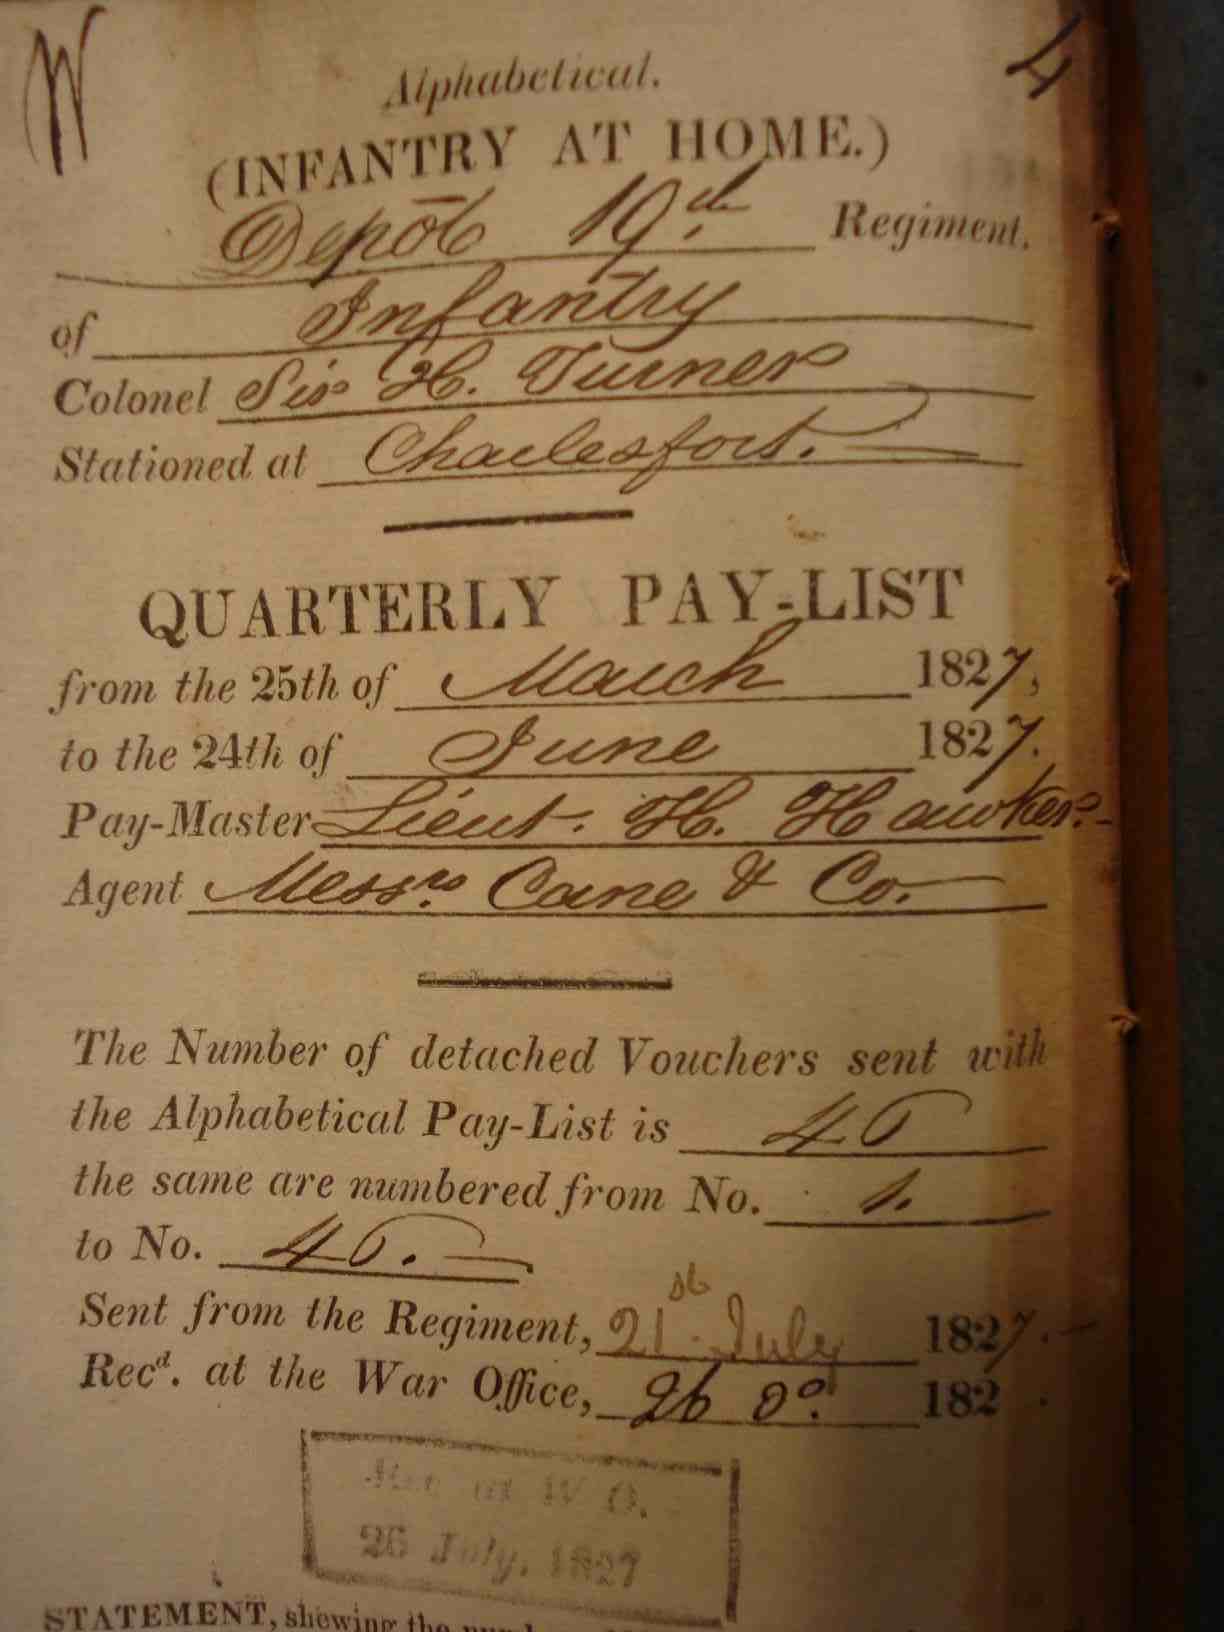 W
4
Alphabetical.
(INFANTRY AT HOME.)
Depôt 19.th Regiment.
of Infantry
Colonel Sir H. Turner
Stationed at Charlesfort.
QUARTERLY PAY-LIST
from the 25th of March 1827,
to the 24th of June 1827.
Pay-Master Lieut. H. Hawkers.
Agent Messrs. Cane & Co.
The Number of detached Vouchers sent with
the Alphabetical Pay-List is 45
the same are numbered from No. 1.
to No. 45.
Sent from the Regiment, 21st July 1827.
Recd. at the War Office, 26 Do. 182 .
Rec at W O.
26 July, 1827
STATEMENT, shewing the